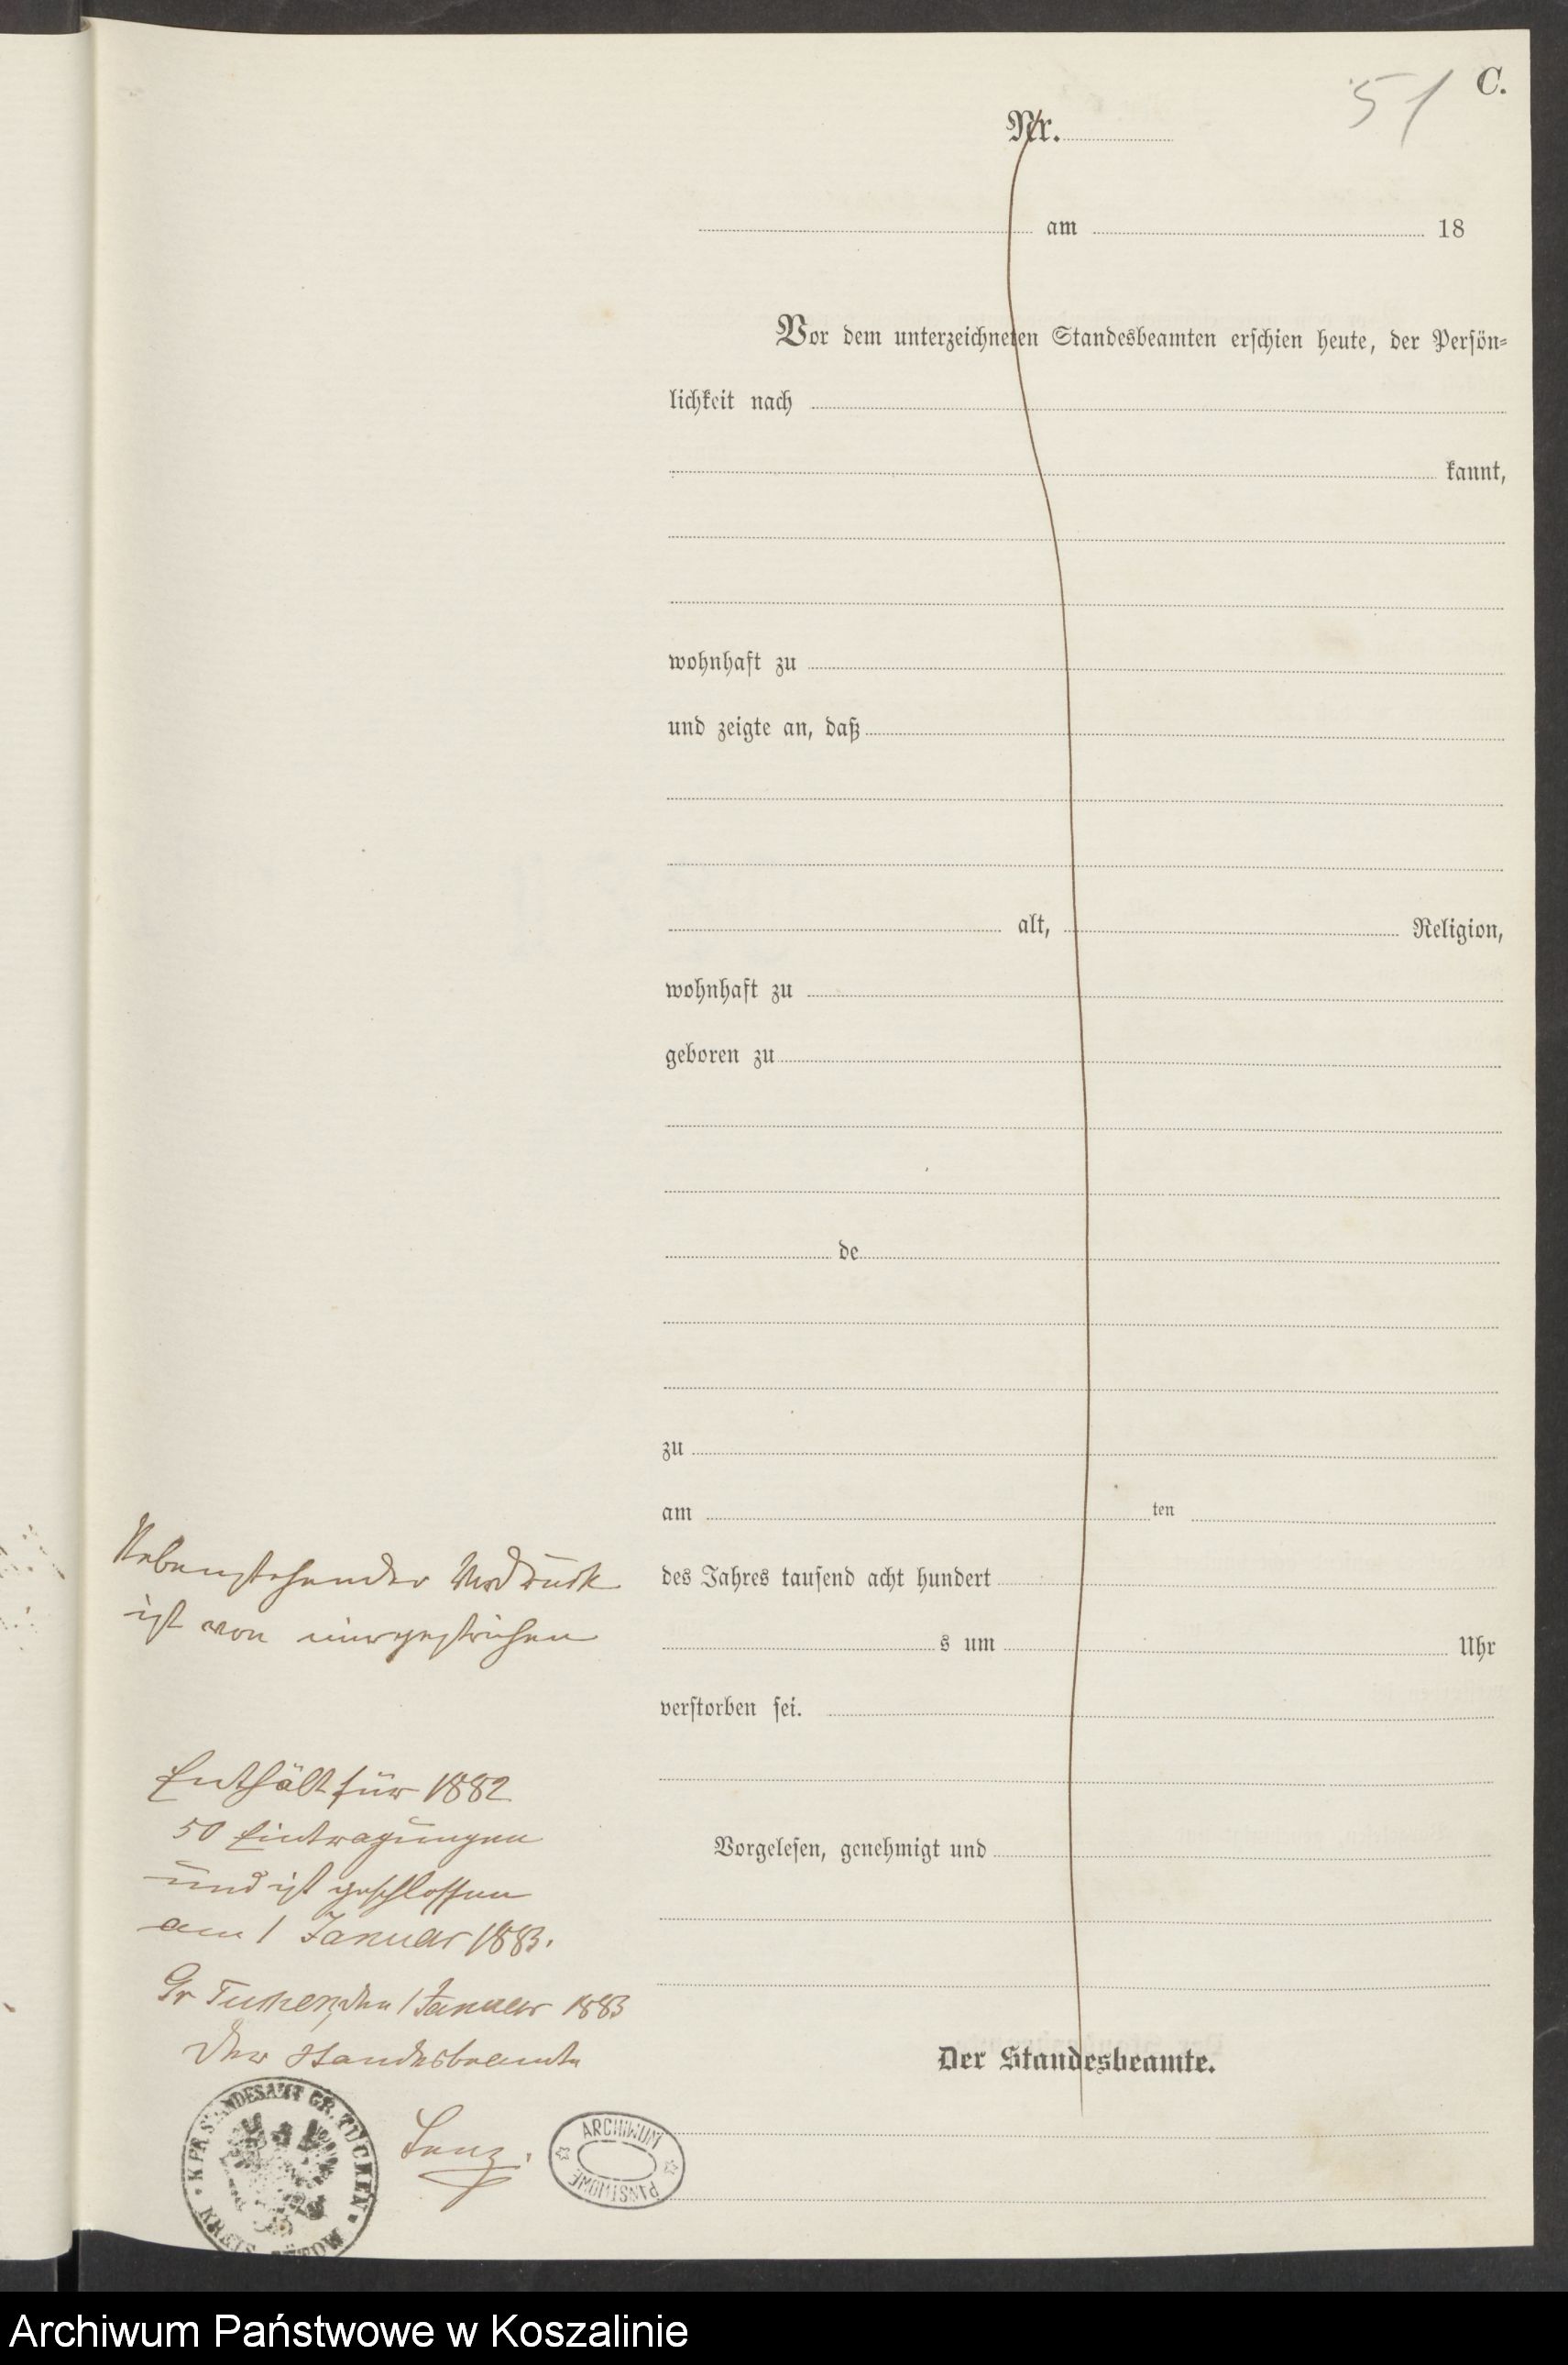 51 C.
Nr.
am 18
Vor dem unterzeichneten Standesbeamten erschien heute, der Persön-
lichkeit nach
kannt,
wohnhaft zu
und zeigte an, daß
alt, Religion,
wohnhaft zu
geboren zu
de
zu
am ten
des Jahres tausend acht hundert
s um Uhr
verstorben sei.
Vorgelesen, genehmigt und
Der Standesbeamte.
Nebenstehender Vordruck
ist von mir gestrichen
Enthält für 1882
50 Eintragungen
und ist geschlossen
am 1 Januar 1883.
Gr Tuchen, den 1 Januar 1883
Der Standesbeamte
Lenz.
K. PR. STANDESAMT GR. TUCKEN
BÜTOW
ARCHIWUM
PAŃSTWOWE
Archiwum Państwowe w Koszalinie